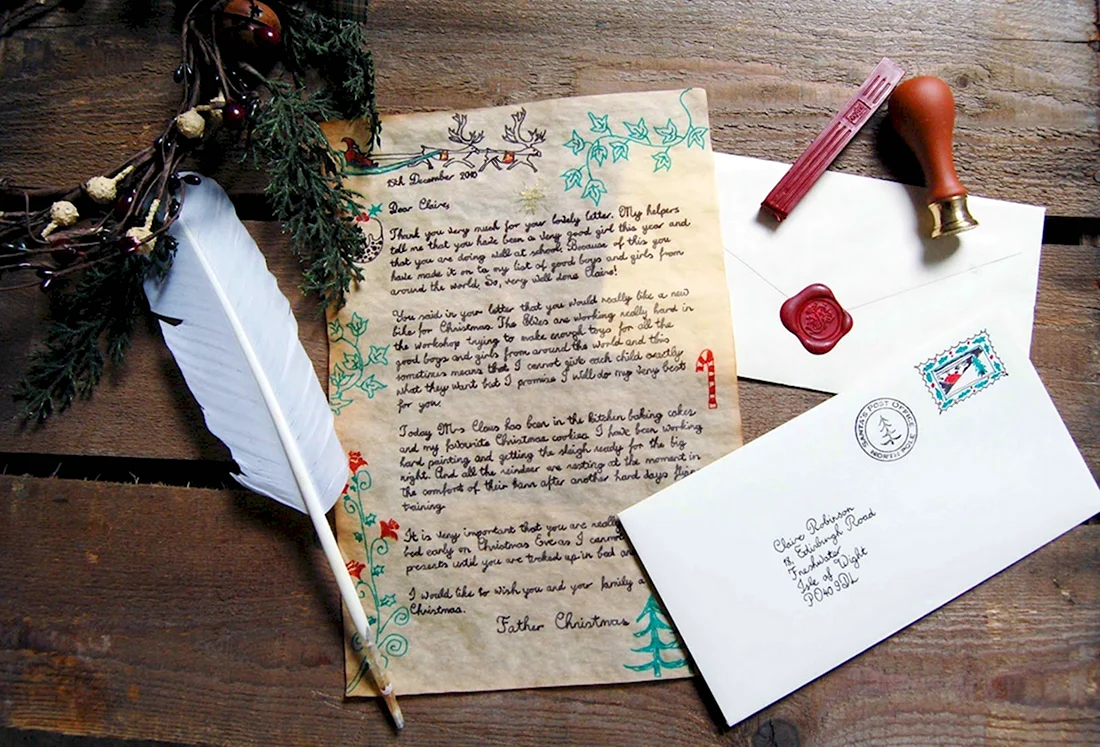 15th December 2010
Dear Claire,
Thank you very much for your lovely letter. My helpers
tell me that you have been a very good girl this year and
that you are doing well at school. Because of this you
have made it on to my list of good boys and girls from
around the world. So, very well done Claire!
You said in your letter that you would really like a new
bike for Christmas. The Elves are working really hard in
the workshop trying to make enough toys for all the
good boys and girls from around the world and this
sometimes means that I cannot give each child exactly
what they want but I promise I will do my very best
for you.
Today Mrs Claus has been in the kitchen baking cakes
and my favourite Christmas cookies. I have been working
hard painting and getting the sleigh ready for the big
night. And all the reindeer are resting at the moment in
the comfort of their barn after another hard days flying
training.
It is very important that you are really
bed early on Christmas Eve as I cannot
presents until you are tucked up in bed an
I would like to wish you and your family a
Christmas.
Father Christmas
SANTA'S POST OFFICE
NORTH POLE
Claire Robinson
Edinburgh Road
Freshwater
Isle of Wight
PO40 9DL